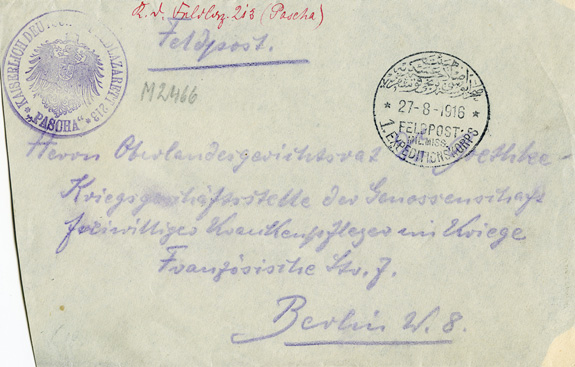 K. d. Feldlaz. 213 (Pascha)
Feldpost.
KAISERLICH DEUTSCHES FELDLAZARETT 213
"PASCHA"
M2466
27-8-1916
FELDPOST
MIL. MISS.
1. EXPEDITIONSKORPS
Herrn Oberlandesgerichtsrat Goethke-
Kriegsgeschäftsstelle der Genossenschaft
freiwilliger Krankenpfleger im Kriege
Französische Str. 7.
Berlin W. 8.